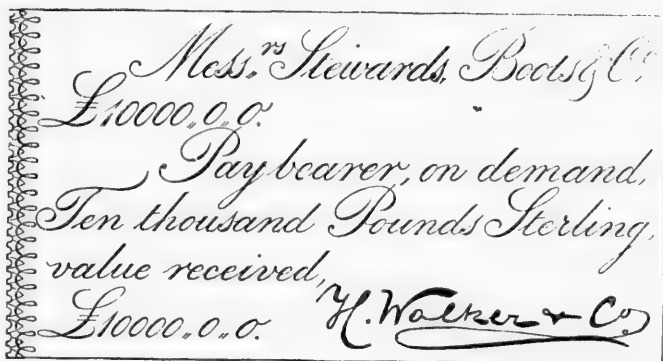 Mess.rs Stewards, Boots & Co.
£10000,,0,,0.
Pay bearer, on demand,
Ten thousand Pounds Sterling,
value received,
£10000,,0,,0. H. Walker & Co